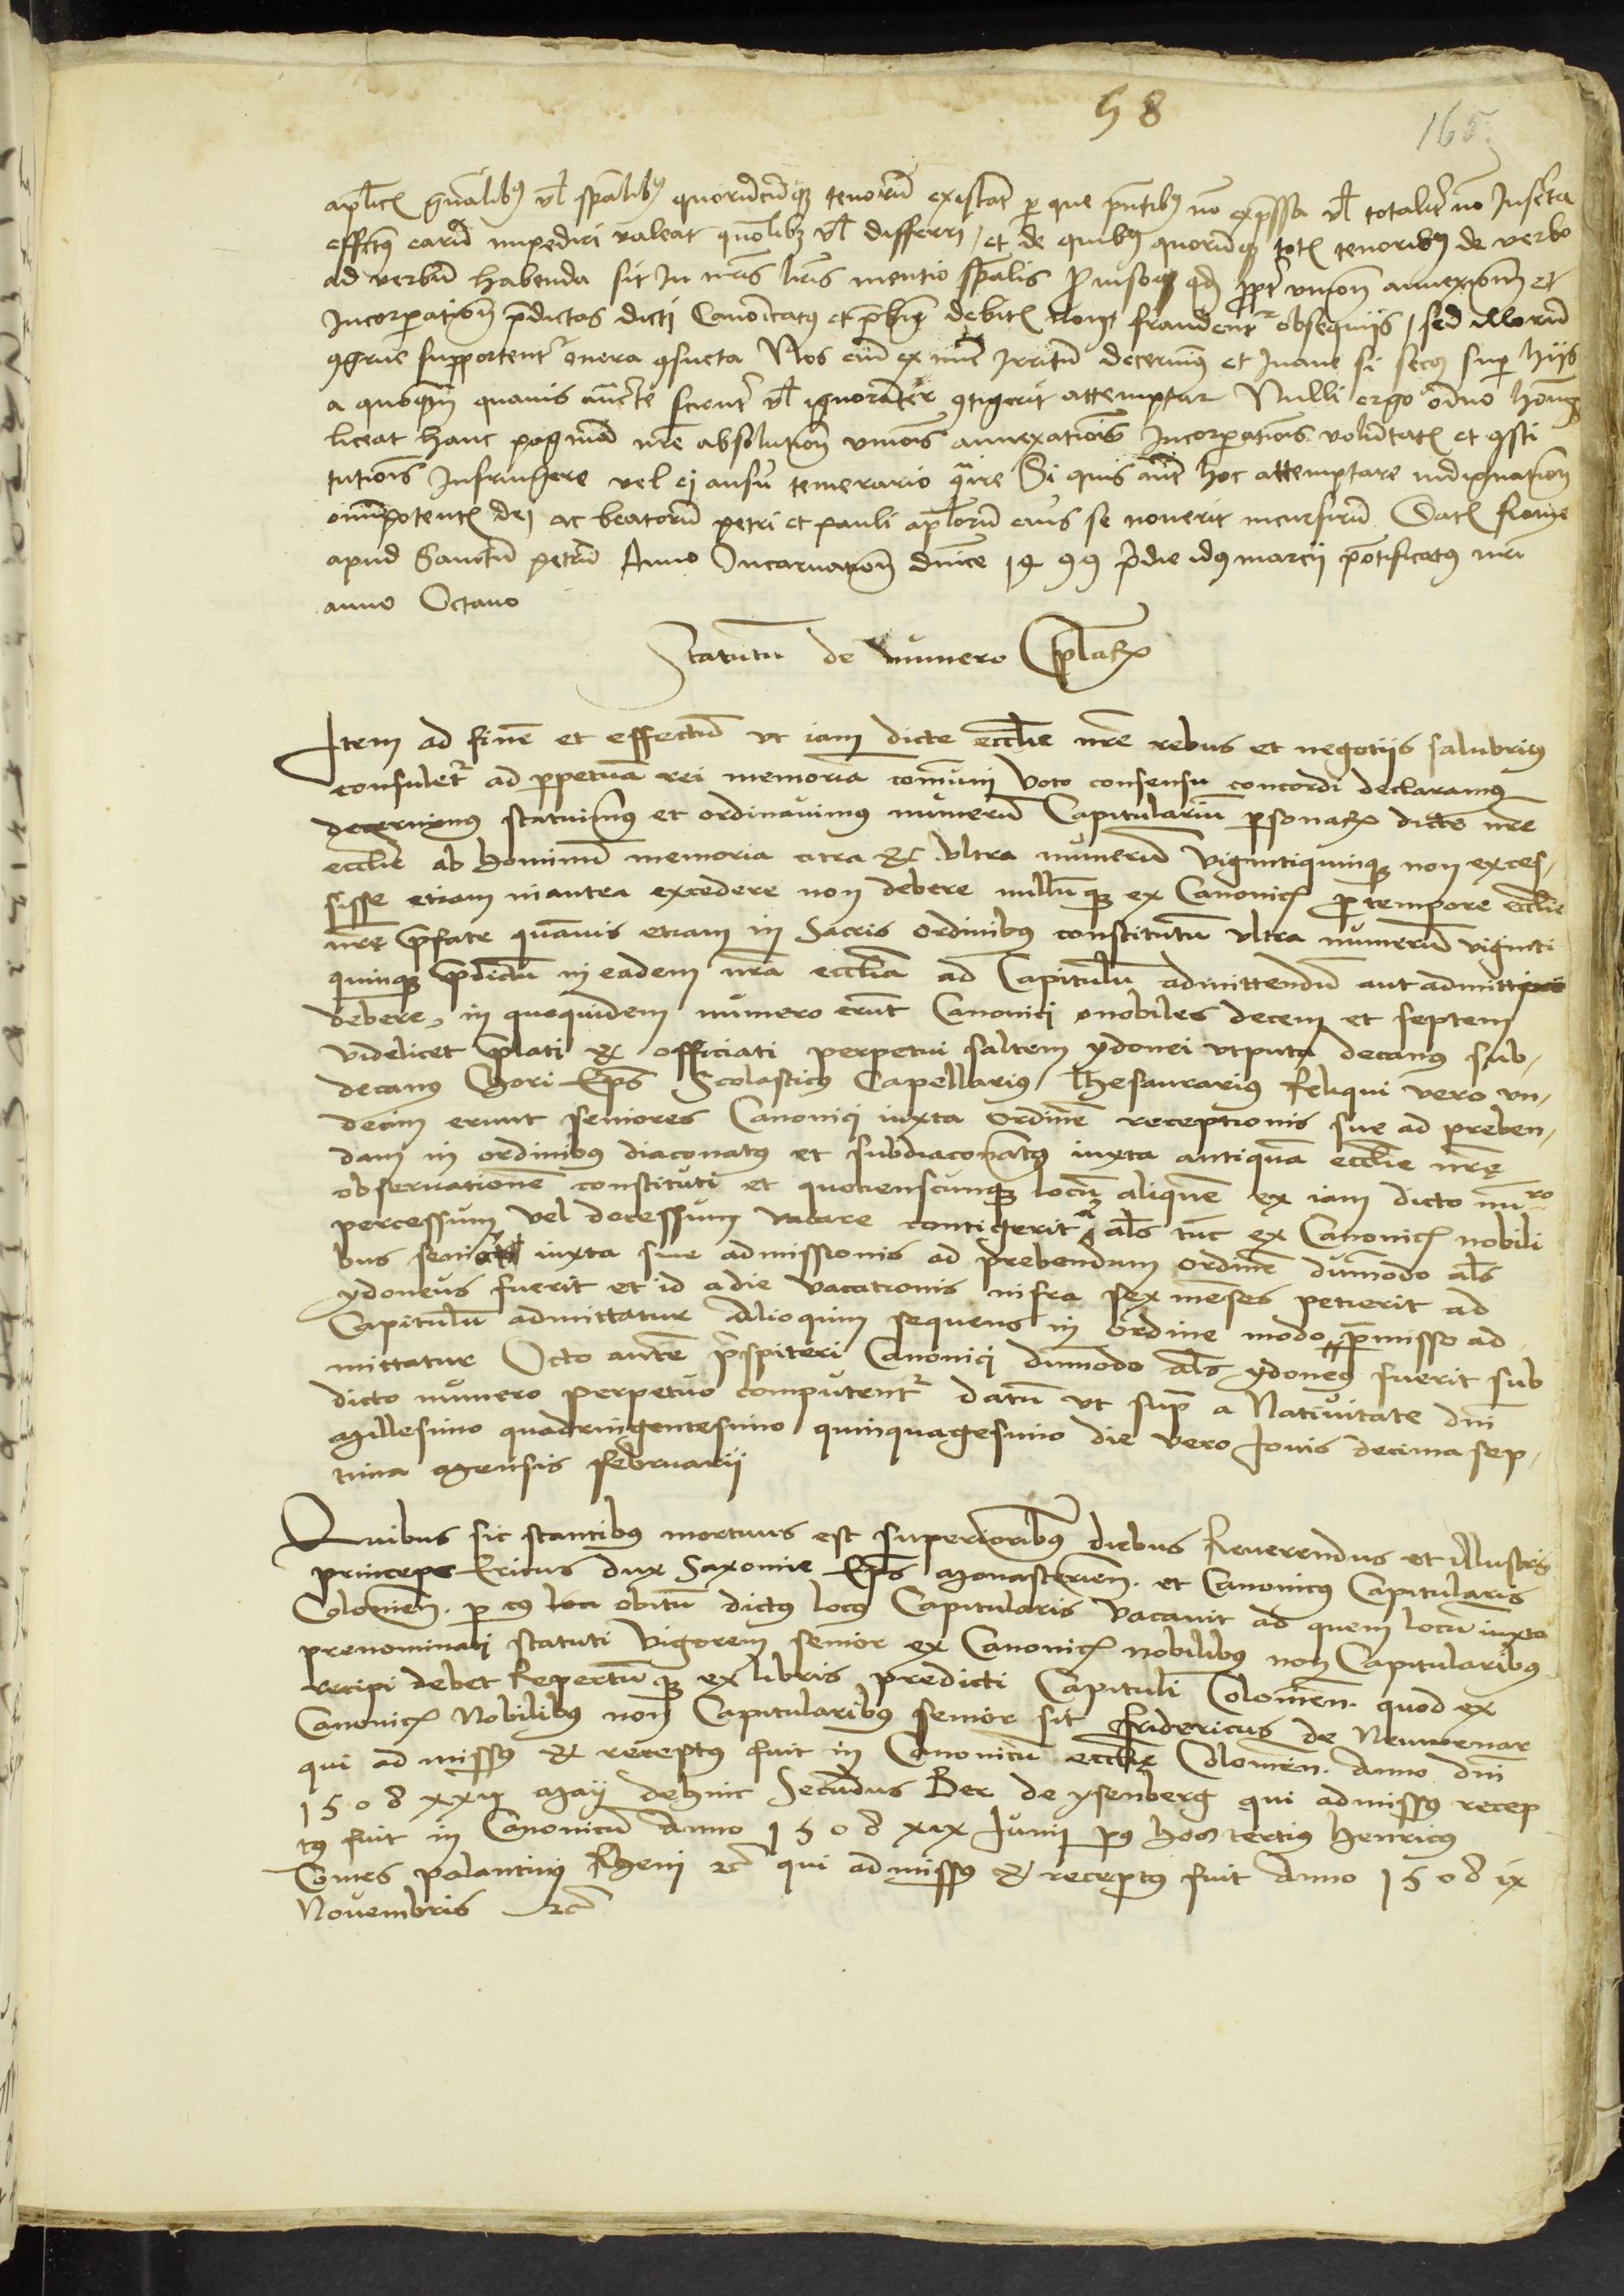 58
165
aplicis gnalibus vel spalibus quorumcumque tenorum existant per que pntibus non expressa vel totaliter non Inserta
effectus earum impediri valeat quomlibet vel differri / et de quibus quorumque totis tenoribus de verbo
ad verbum habenda sit In nris lris mentio spalis Prouiso quod propter vnionem annexionem et
Incorporationem predictas dicti Canonicatus et prebende debitis non fraudentur obsequijs / sed illorum
congrue supportentur onera consueta Nos enim ex nunc Irritum decernimus et Inane si secus super hijs
a quoquam quauis aucte scienter vel ignoranter contigerit attemptari Nulli ergo omnino hominum
liceat hanc paginam nre absolutionis vnionis annexationis Incorporationis voluntatis et consti
tutionis Infringere vel ei ausu temerario contraire Si quis autem hoc attemptare indignationem
omnipotentis dej ac beatorum petri et pauli aplorum eius se nouerit incursurum Datis Rome
apud Sanctum petrum Anno Incarnationis dnice 1499 pridie idus marcij pontificatus nri
anno Octauo
Statutum de numero Cplarium
Item ad finem et effectum vt iam dicte ecclie nre rebus et negotijs salubrius
consuletur ad perpetuam rei memoriam comuni voto consensu concordi declaramus
decernimus statuimus et ordinauimus numerum Capitularium personarum dicte nre
ecclie ab hominum memoria citra & vltra numerum vigintiquinque non exces-
sisse etiam inantea excedere non debere nullumque ex Canonicis pro tempore ecclie
nre prefate quamuis etiam in Sacris ordinibus constitutum vltra numerum viginti
quinque predictum in eadem nra ecclia ad Capitulum admittendum aut admitti
debere, in quoquidem numero erunt Canonici nobiles decem et septem
videlicet prelati & officiati perpetui saltem ydonei vtputa decanus sub-
decanus Chori Eps Scolasticus Capellarius Thesaurarius Reliqui vero vn-
decim erunt seniores Canonici iuxta ordinem receptionis sue ad preben-
dam in ordinibus diaconatus et subdiaconatus iuxta antiquam ecclie nre
obseruationem constituti et quotienscunque locum aliquem ex iam dicto nuro
percessum vel decessum vacare contigerit als tunc ex Canonicis nobili
bus senior iuxta sue admissionis ad prebendam ordinem dummodo als
ydoneus fuerit et id a die vacationis infra sex menses petierit ad
Capitulum admittatur Alioquin sequens in ordine modo premisso ad
mittatur Octo autem prespiteri Canonici dummodo als ydoneus fuerit sub
dicto numero perpetuo computentur datum vt supra a Natiuitate dni
Millesimo quadringentesimo quinquagesimo die vero Jouis decima sep-
tima Mensis Februarij
Quibus sic stantibus mortuus est superioribus diebus Reuerendus et illustris
princeps Ericus dux Saxonie Eps Monasterien. et Canonicus Capitularis
Colonien. per cuius obitum dictus locus Capitularis vacauit ad quem locum iuxta
prenominati statuti vigorem senior ex Canonicis nobilibus non Capitularibus
recipi debet Repertumque ex libris predicti Capituli Colonien. quod ex
Canonicis Nobilibus non Capitularibus senior sit Fridericus de Neuwenar
qui admissus & receptus fuit in Canonicum ecclie Colonien. Anno dni
1508 xxij Maij dehinc Secundus Ber de ysenberg qui admissus recep
tus fuit in Canonicum Anno 1508 xix Junij post hos tertius Henricus
Comes palantinus Rheni etc qui admissus & receptus fuit Anno 1508 ix
Nouembris etc